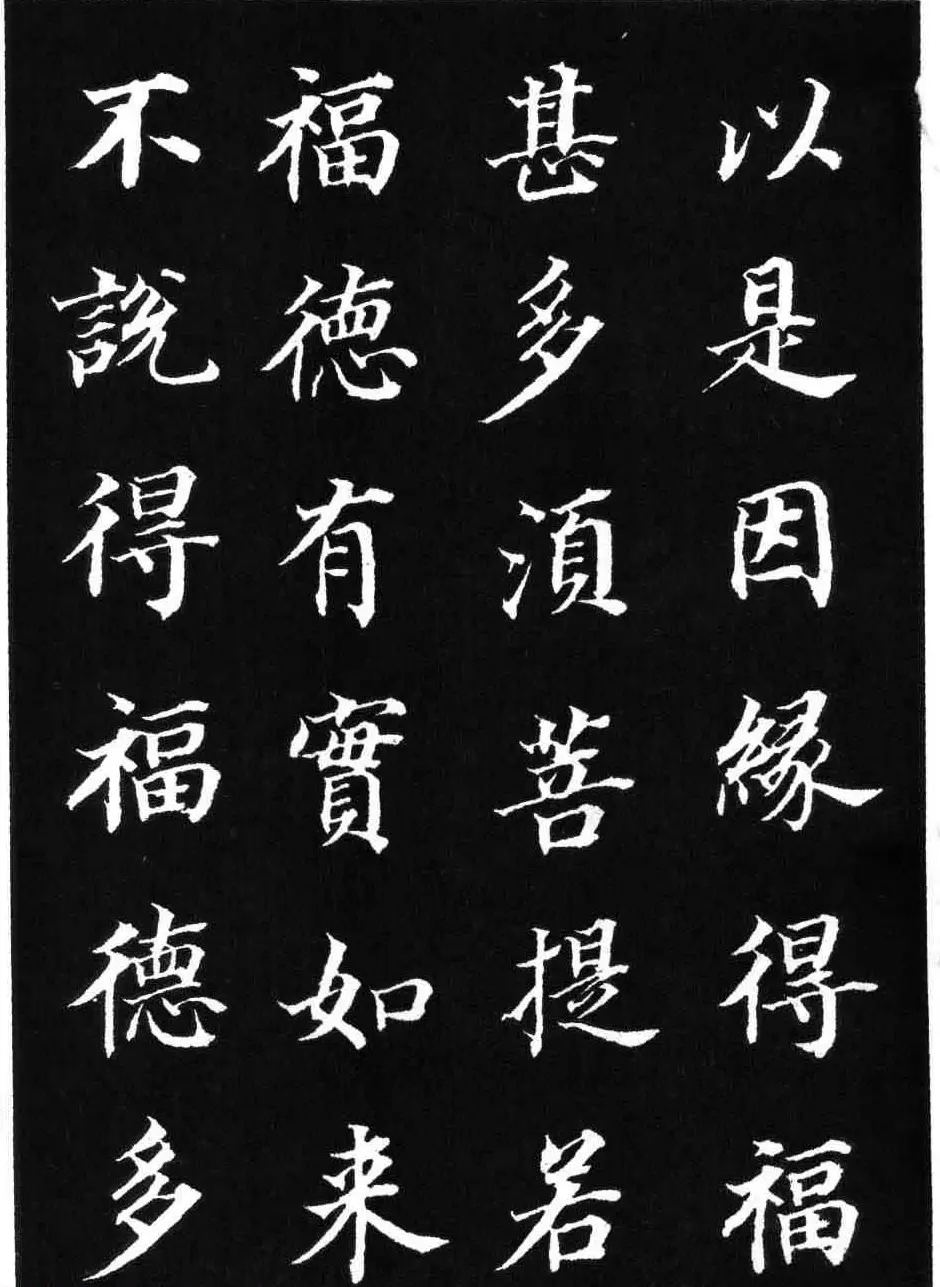 以是因緣得福
甚多須菩提若
福德有實如来
不說得福德多